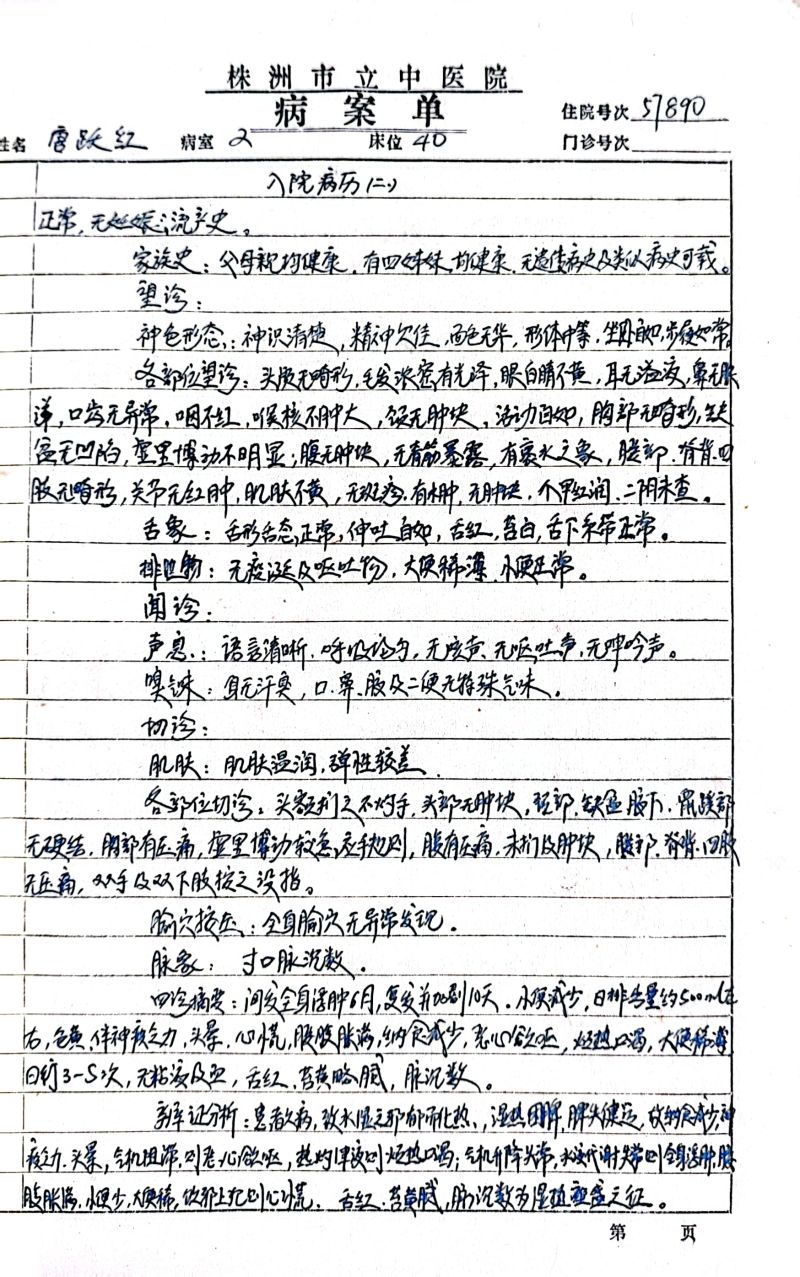 株洲市立中医院
病案单
住院号次 57890
姓名 唐跃红 病室 2 床位 40 门诊号次
入院病历(二)
正常，无妊娠、流产史。
家族史：父母亲均健康，有四姊妹，均健康，无遗传病史及类似病史可载。
望诊：
神色形态：神识清楚，精神欠佳，面色无华，形体中等，坐卧自如，步履如常。
各部位望诊：头放无畸形，毛发浓密有光泽，眼白睛不黄，耳无溢液，鼻无脓
涕，口齿无异常，咽不红，喉核不肿大，颈无肿块，活动自如，胸部无畸形，缺
盆无凹陷，虚里搏动不明显；腹无肿块，无青筋暴露，有裹水之象，腰部、脊背、四
肢无畸形，关节无红肿，肌肤不黄，无斑疹，有水肿，无肿块，爪甲红润，二阴未查。
舌象：舌形舌态正常，伸吐自如，舌红，苔白，舌下系带正常。
排出物：无痰涎及呕吐物，大便稀薄，小便正常。
闻诊：
声息：语言清晰，呼吸均匀，无咳声、无呕吐声，无呻吟声。
嗅气味：身无汗臭，口、鼻、腋及二便无特殊气味。
切诊：
肌肤：肌肤温润，弹性较差
各部位切诊：头额扪之不灼手，头部无肿块，颈部、缺盆、腋下、鼠蹊部
无硬结，胸部有压痛，虚里搏动较急，应手规则，腹有压痛，未扪及肿块，腰部、脊背、四肢
无压痛，双手及双下肢按之没指。
腧穴按压：全身腧穴无异常发现。
脉象：寸口脉沉数。
四诊摘要：间发全身浮肿6月，复发并加剧10天。小便减少，日排出量约500ml左
右，色黄，伴神疲乏力，头晕，心慌，脘腹胀满，纳食减少，恶心欲呕，烦热口渴，大便稀薄
日行3-5次，无粘液及血，舌红，苔黄略腻，脉沉数。
辨证分析：患者久病，致水湿之邪郁而化热，湿热困脾，脾失健运，故纳食减少，神
疲乏力，头晕，气机阻滞，则恶心欲呕，热灼津液则烦热口渴；气机升降失常，水液代谢失常则全身浮肿，脘
腹胀满，小便少，大便稀，上犯则心慌。舌红，苔黄腻，脉沉数为湿热壅盛之征。
第 页